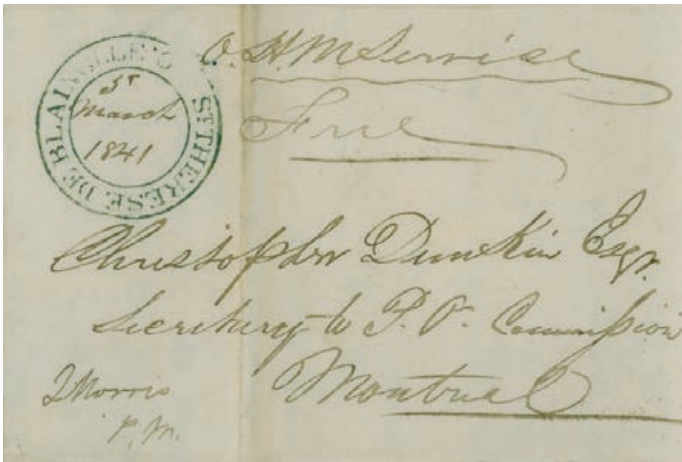 O. H. M Servise
Free
ST THERESE DE BLAINVILLE
5r
March
1841
Christopher Dunkin Esqr.
Secretary to P. O. Commission
Montreal
J Morris
P. M.